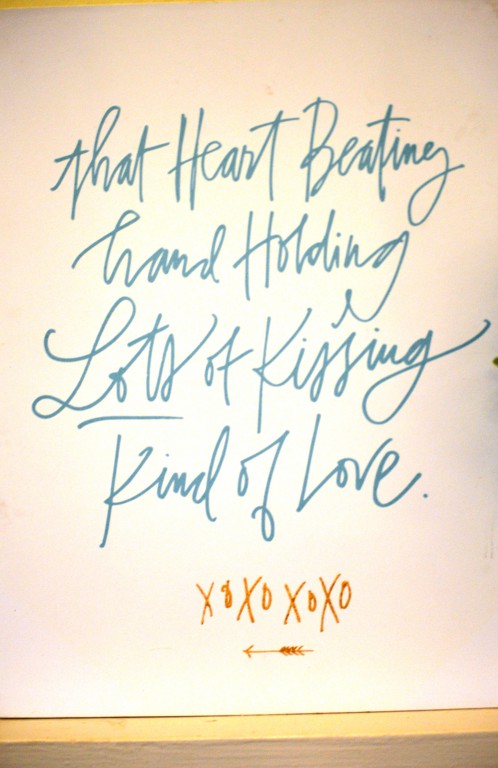 that Heart Beating
hand Holding
Lots of Kissing
Kind of Love.
XOXO XOXO